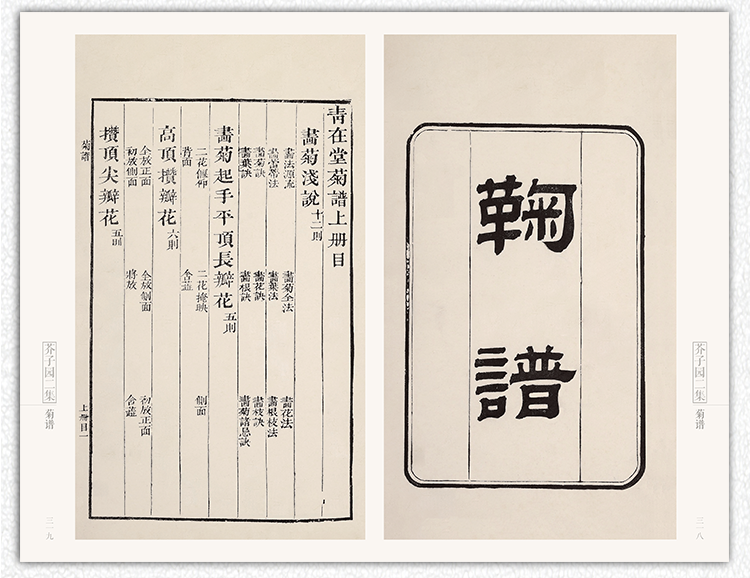 鞠
譜
芥子园二集
菊谱
三一八
靑在堂菊譜上册目
畫菊淺說 十二則
畫法源流 畫菊全法 畫花法
畫蕾蒂法 畫葉法 畫根枝法
畫菊訣 畫花訣 畫枝訣
畫葉訣 畫根訣 畫菊諸忌訣
畫菊起手平頂長瓣花 五則
二花俯仰 二花掩映 側面
背面 含蕊
高頂攢瓣花 六則
全放正面 全放側面 初放正面
初放側面 將放 含蕊
攢頂尖瓣花 五則
菊譜 上册目一
芥子园二集
菊谱
三一九